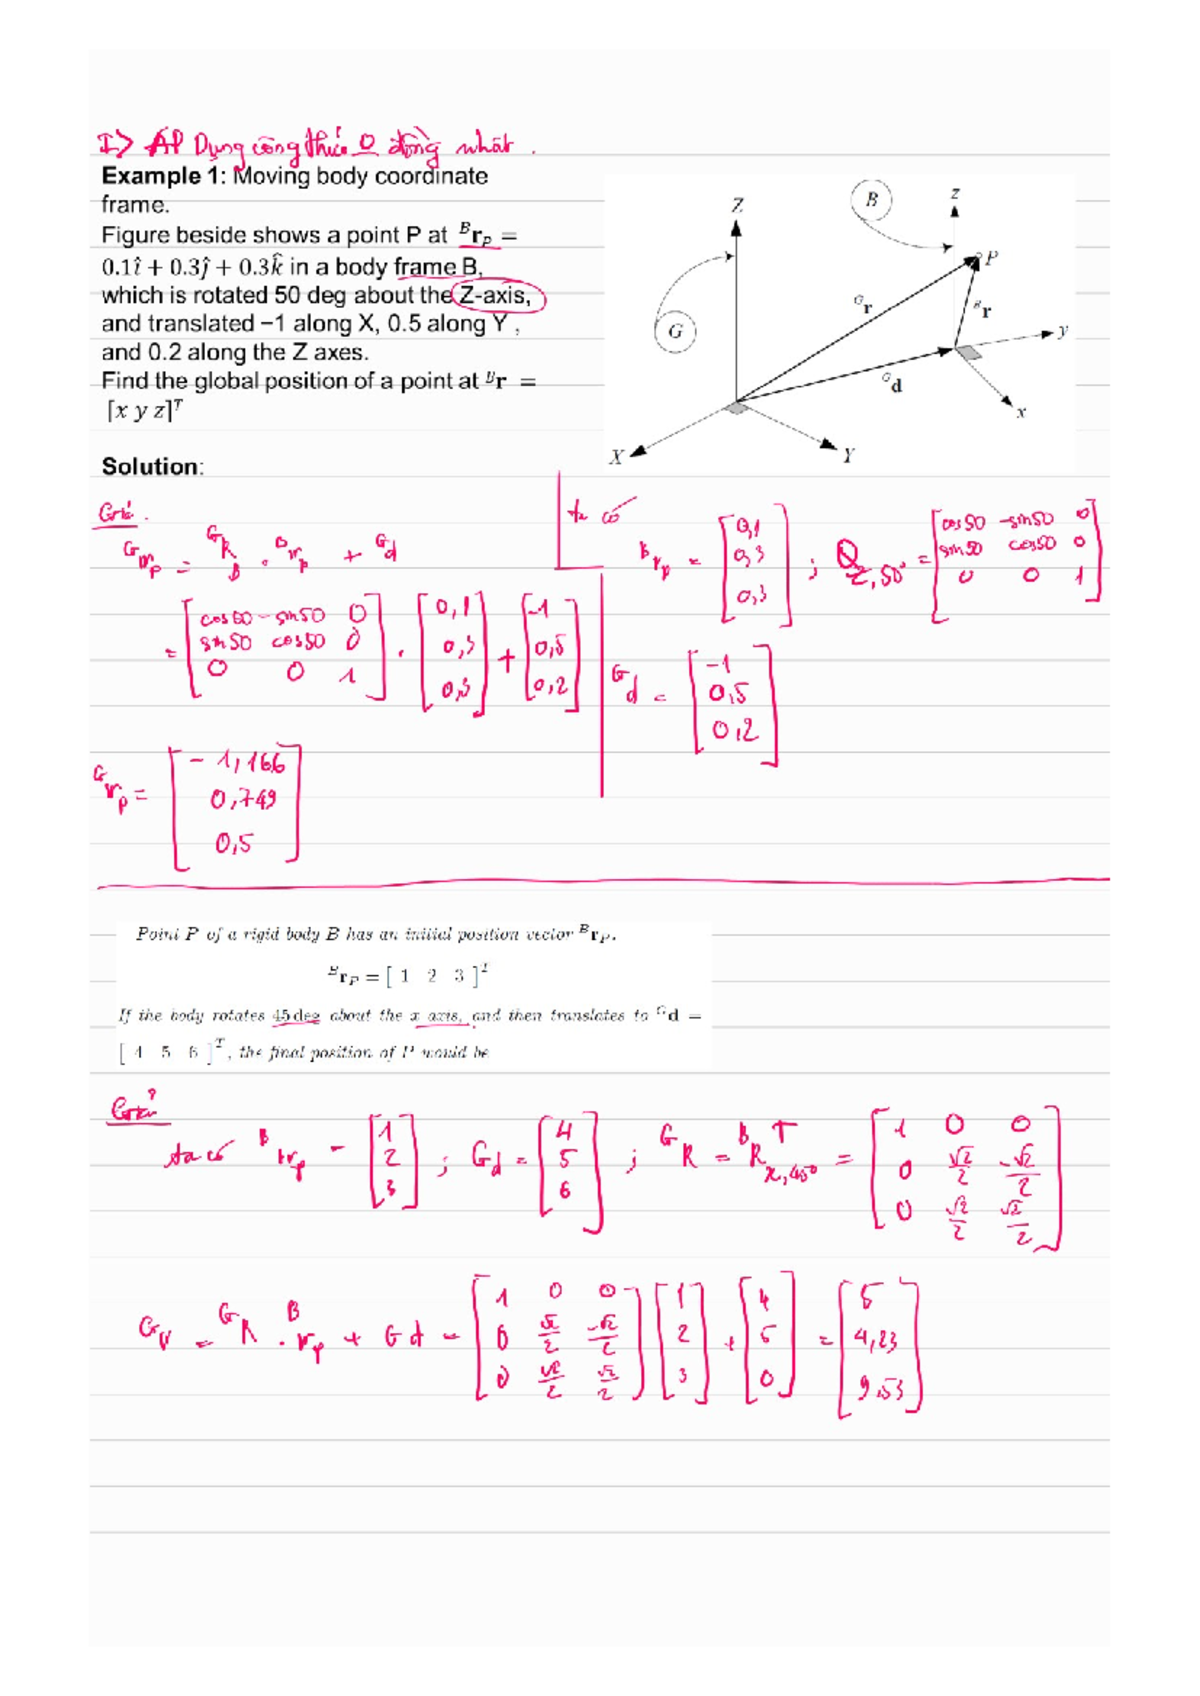 I> ÁP Dụng công thức O đồng nhất .
Example 1: Moving body coordinate
frame.
Figure beside shows a point P at ᴮr_P =
0.1î + 0.3ĵ + 0.3k̂ in a body frame B,
which is rotated 50 deg about the Z-axis,
and translated −1 along X, 0.5 along Y ,
and 0.2 along the Z axes.
Find the global position of a point at ᴮr =
[x y z]ᵀ
Z B z
P
ᴳr ᴮr
G y
ᴳd
x
X Y
Solution:
ᴳr_P = ᴳR_B . ᴮr_P + ᴳd
= [cos50 -sin50 0
sin50 cos50 0
0 0 1] . [0,1
0,3
0,3] + [-1
0,5
0,2]
ta có
ᴮr_P = [0,1
0,3
0,3] ; Q_Z,50° = [cos50 -sin50 0
sin50 cos50 0
0 0 1]
ᴳd = [-1
0,5
0,2]
ᴳr_P = [-1,166
0,749
0,5]
Point P of a rigid body B has an initial position vector ᴮr_P.
ᴮr_P = [ 1 2 3 ]ᵀ
If the body rotates 45 deg about the x axis, and then translates to ᴳd =
[ 4 5 6 ]ᵀ, the final position of P would be
Giải
ta có ᴮr_P = [1
2
3] ; ᴳd = [4
5
6] ; ᴳR = ᴮRᵀ_x,45° = [1 0 0
0 √2/2 -√2/2
0 √2/2 √2/2]
ᴳr = ᴳR . ᴮr_P + ᴳd = [1 0 0
0 √2/2 -√2/2
0 √2/2 √2/2] [1
2
3] + [4
5
0] = [5
4,23
9,53]